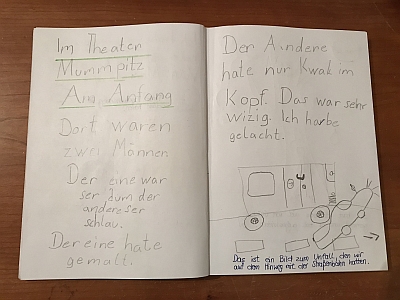 Im Theater
Mummpitz
Am Anfang
Dort waren
zwei Männen
Der eine war
ser dum der
andere ser
schlau.
Der eine hate
gemalt.
Der Andere
hate nur Kwak im
Kopf. Das war sehr
wizig. Ich harbe
gelacht.
Das ist ein Bild zum Unfall, den wir
auf dem Hinweg mit der Straßenbahn hatten.